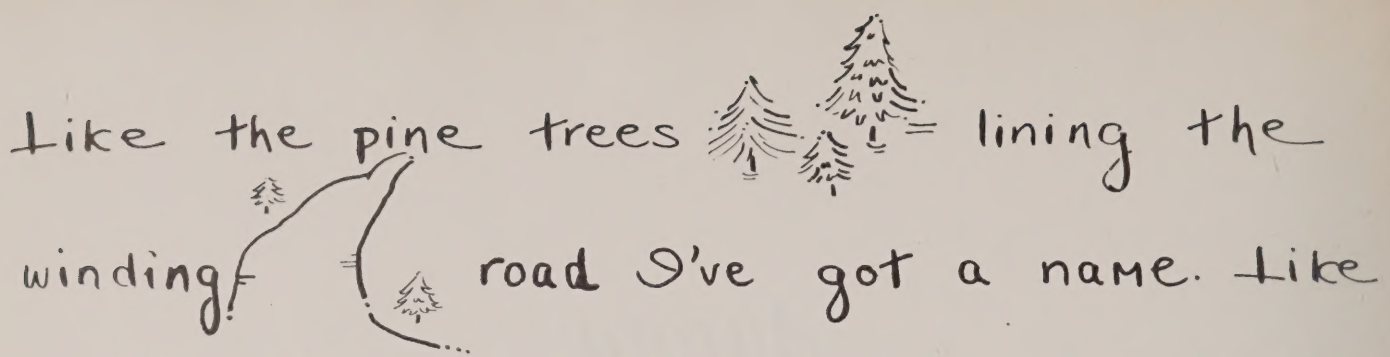 Like the pine trees lining the
winding road I've got a name. Like